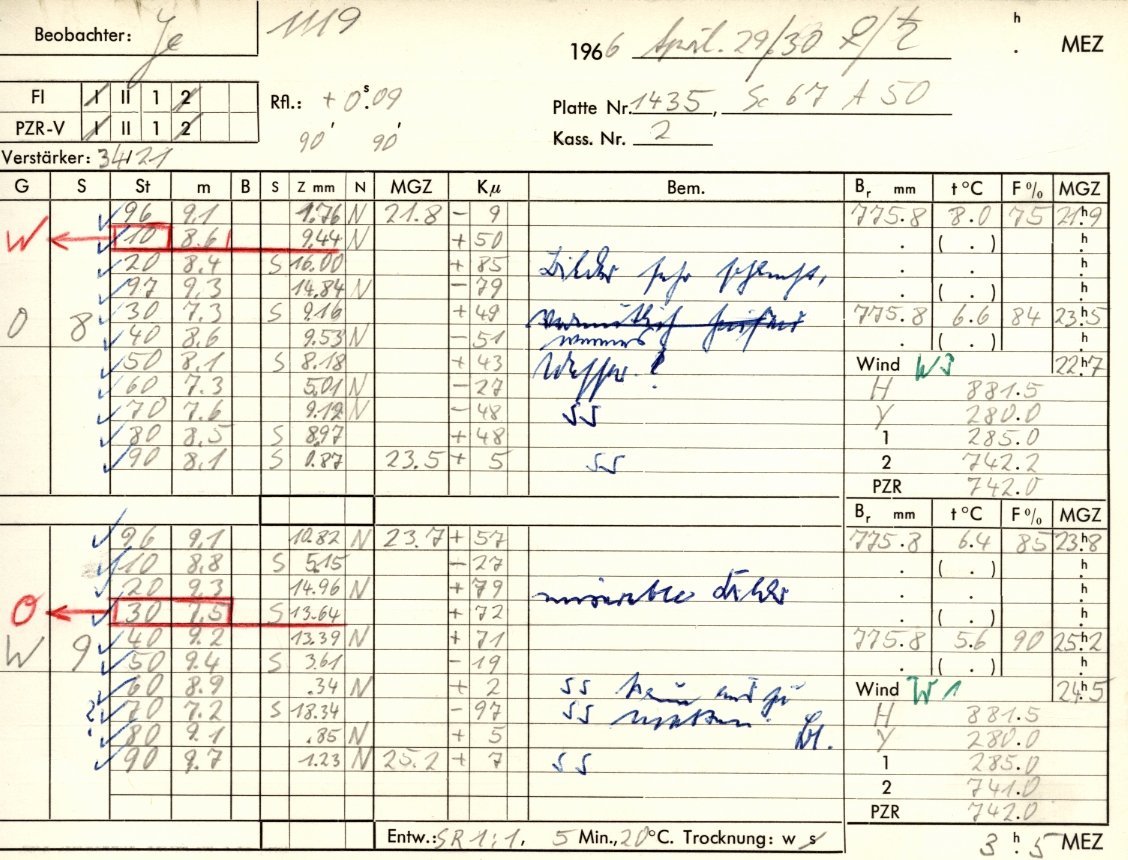 Beobachter: Je 1119
1966 April. 29/30 ♀/♄ h . MEZ
FI I II 1 2
PZR-V I II 1 2
Rfl.: + 0ˢ.09
90' 90'
Platte Nr. 1435, Sc 67 A 50
Kass. Nr. 2
Verstärker: 34/21
G S St m B S Z mm N MGZ Kμ Bem. Br mm t °C F % MGZ
96 9.1 1.76 N 21.8 - 9 775.8 8.0 75 21ʰ9
W ← 10 8.6 9.44 N + 50 . ( . ) h
20 8.4 S 16.00 + 85 Bilder sehr schlecht, . . h
97 9.3 14.84 N - 79 . ( . ) h
O 8 30 7.3 S 9.16 + 49 vermutlich 775.8 6.6 84 23ʰ5
40 8.6 9.53 N - 51 . ( . ) h
50 8.1 S 8.18 + 43 Wasser! Wind W3 22ʰ7
60 7.3 5.01 N - 27 H 881.5
70 7.6 9.12 N - 48 SS Y 280.0
80 8.5 S 8.97 + 48 1 285.0
90 8.1 S 0.87 23.5 + 5 SS 2 742.2
PZR 742.0
Br mm t °C F % MGZ
96 9.1 10.82 N 23.7 + 57 775.8 6.4 85 23ʰ8
10 8.8 S 5.15 - 27 . ( . ) h
20 9.3 14.96 N + 79 miserable Bilder . . h
O ← 30 7.5 S 13.64 + 72 . ( . ) h
W 9 40 9.2 13.39 N + 71 775.8 5.6 90 25ʰ2
50 9.4 S 3.61 - 19 . ( . ) h
60 8.9 .34 N + 2 SS kaum mit zu Wind W 1 24ʰ5
? 70 7.2 S 18.34 - 97 SS H 881.5
80 9.1 .85 N + 5 Y 280.0
90 9.7 1.23 N 25.2 + 7 SS 1 285.0
2 741.0
PZR 742.0
Entw.: SR 1:1, 5 Min., 20°C. Trocknung: w s 3 ʰ. 5 MEZ